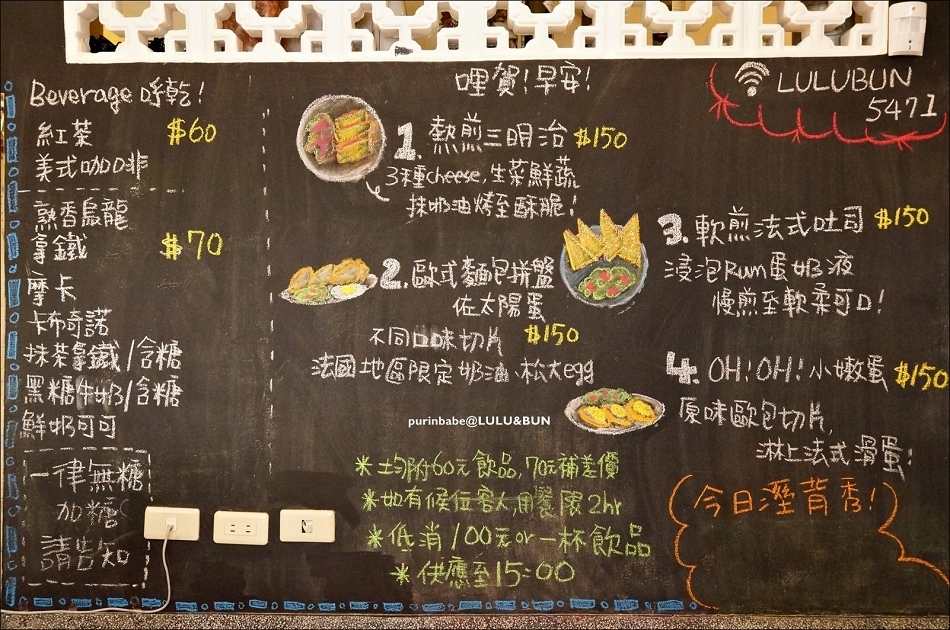 Beverage 呼乾!
紅茶 $60
美式咖啡
熟香烏龍
拿鐵 $70
摩卡
卡布奇諾
抹茶拿鐵/含糖
黑糖牛奶/含糖
鮮奶可可
一律無糖
加糖
請告知
哩賀!早安!
1.熱煎三明治 $150
3種cheese,生菜鮮蔬
抹奶油烤至酥脆!
2.歐式麵包拼盤
佐太陽蛋
不同口味切片 $150
法國地區限定奶油、松太egg
purinbabe@LULU&BUN
LULUBUN
5471
3.軟煎法式吐司 $150
浸泡Rum蛋奶液
慢煎至軟柔可口!
4.OH!OH!小嫩蛋 $150
原味歐包切片,
淋上法式滑蛋!
*均附60元飲品,70元補差價
*如有候位客人,用餐限2hr
*低消100元or一杯飲品
*供應至15:00
(今日溼背秀!)